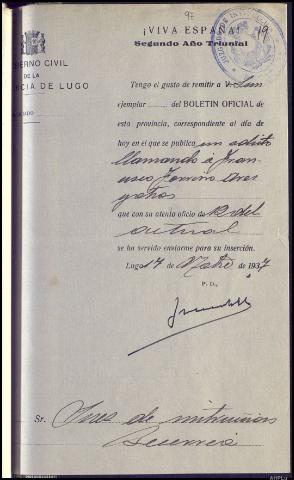 97
¡VIVA ESPAÑA!
Segundo Año Triunfal
19
GOBIERNO CIVIL
DE LA
PROVINCIA DE LUGO
Tengo el gusto de remitir a V. un
ejemplar del BOLETIN OFICIAL de
esta provincia, correspondiente al día de
hoy en el que se publica un edicto
llamando á Fran-
cisco
y otros
que con su atento oficio de 12 del
actual
se ha servido enviarme para su inserción.
Lugo 17 de de 1937
P. D.,
Sr. Juez de instrucción
Becerreá